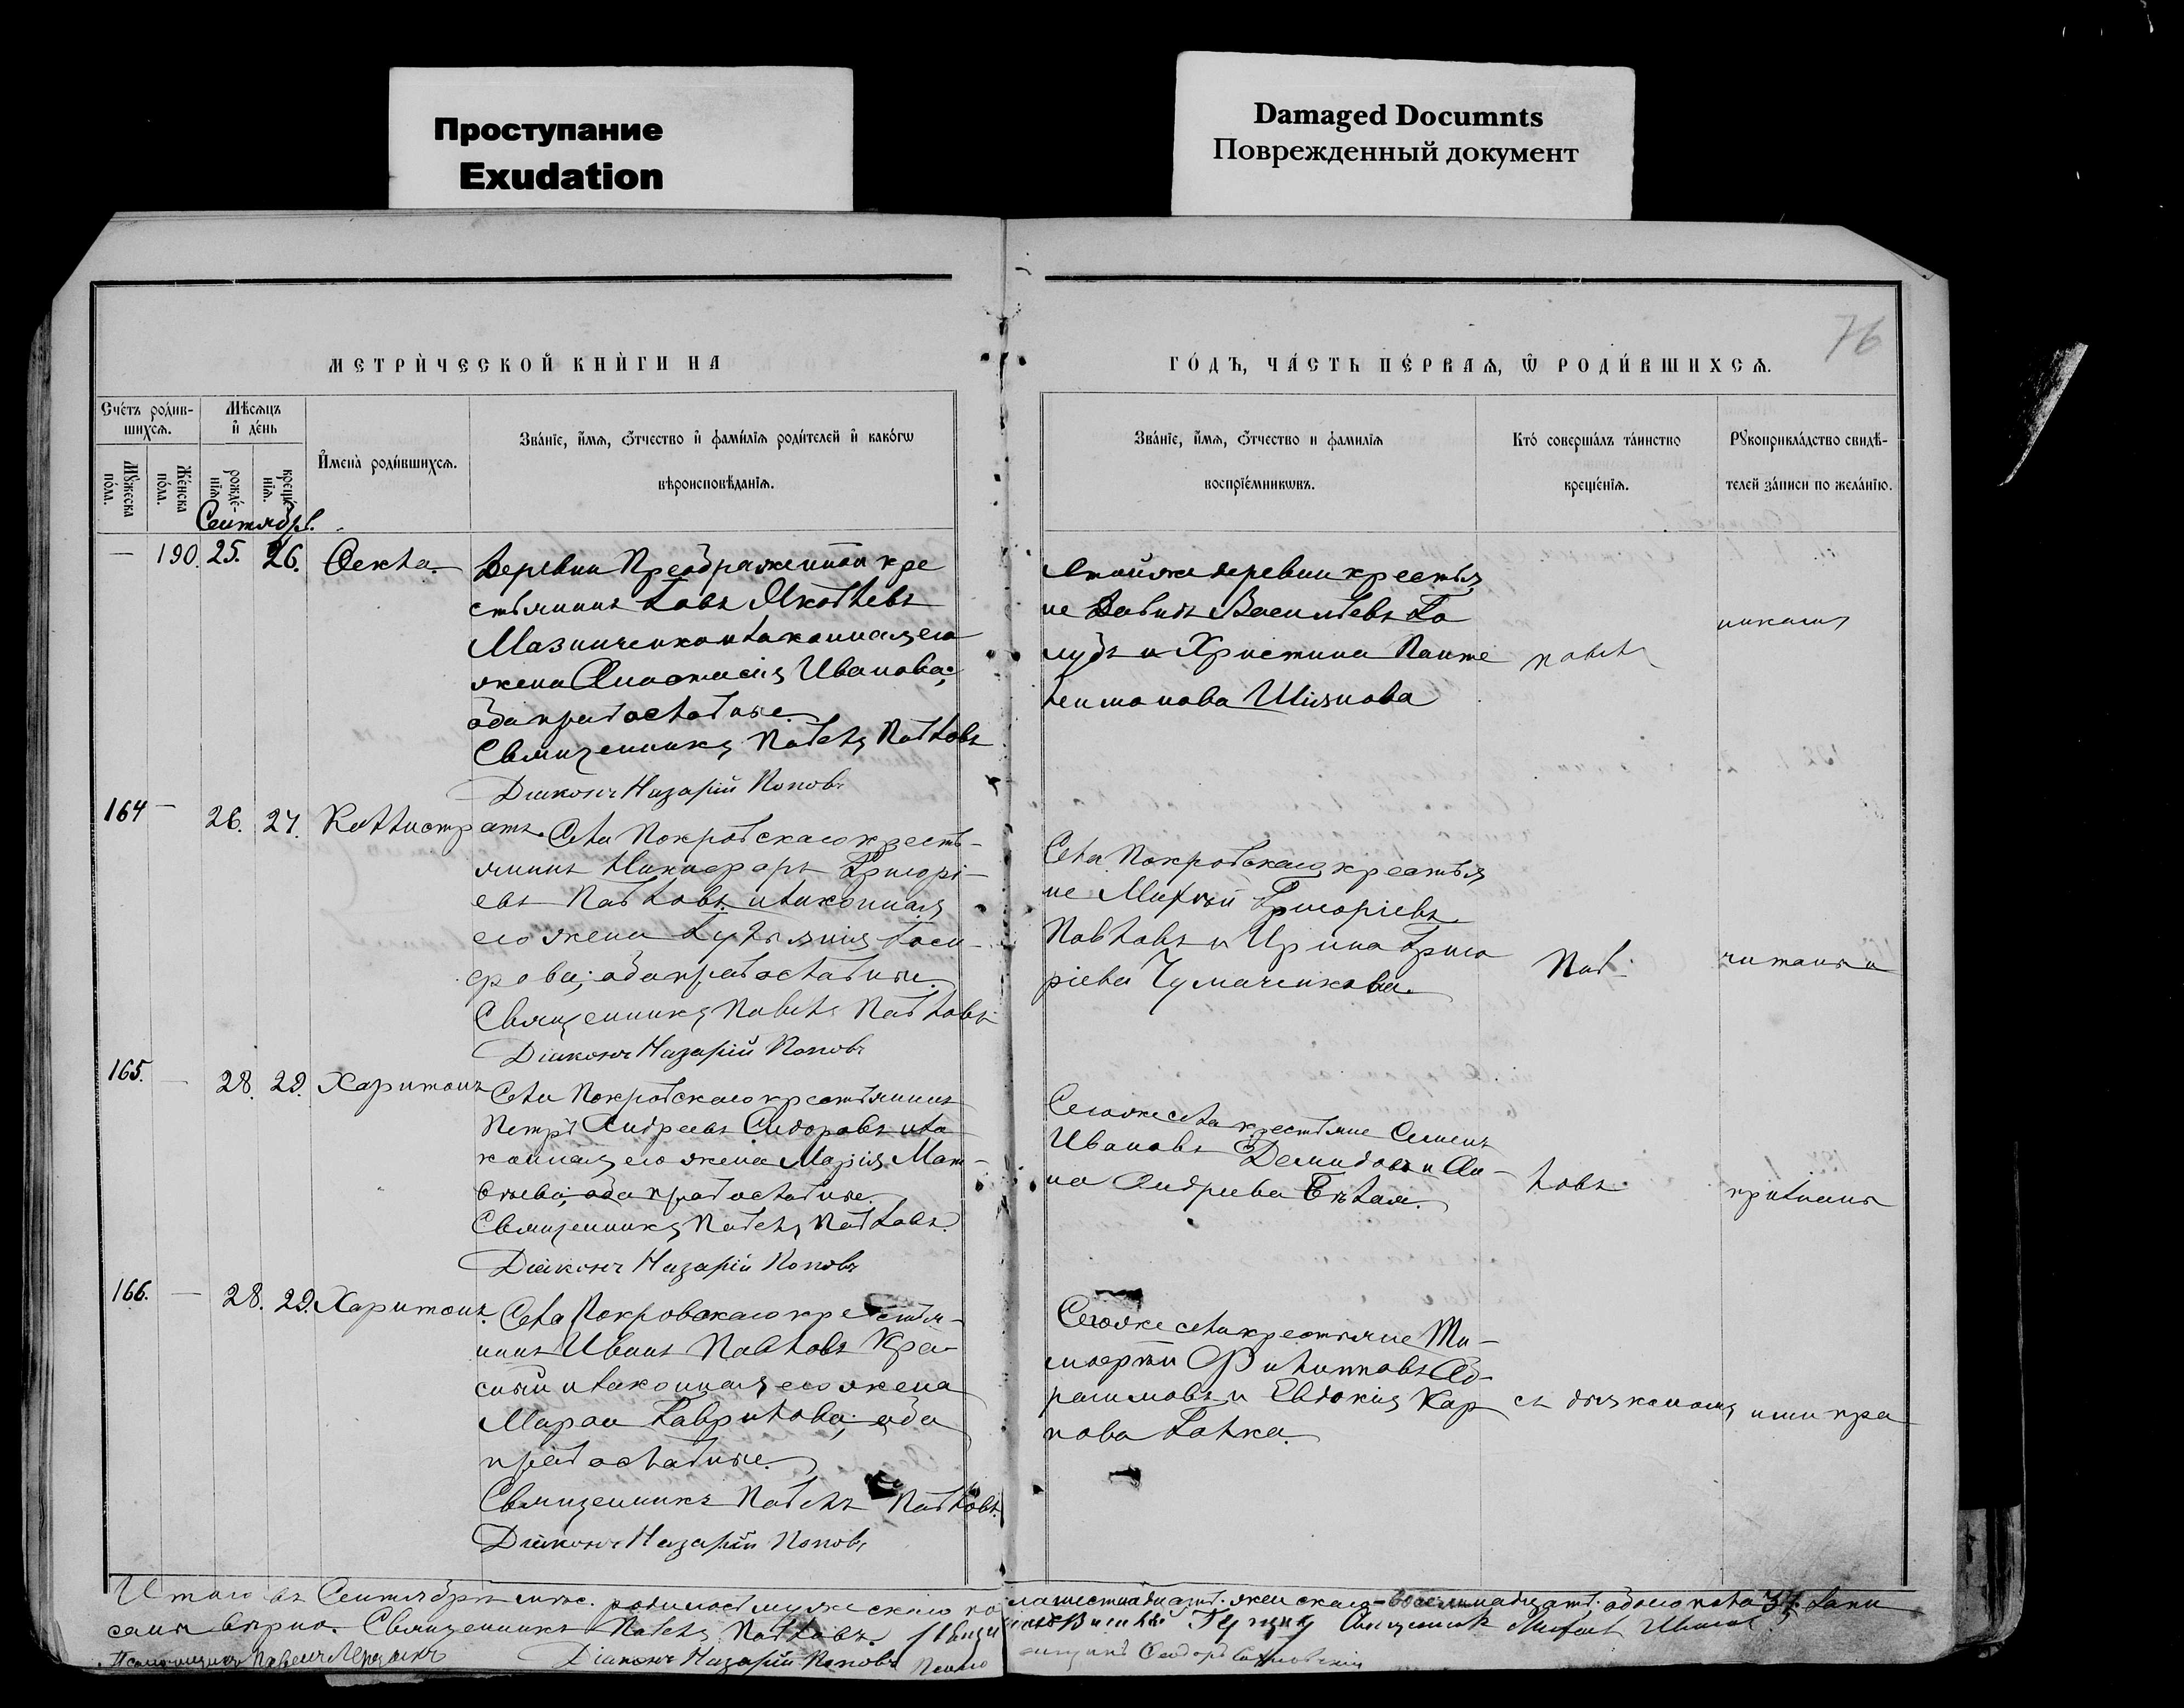 Проступание
Exudation
Damaged Documnts
Поврежденный документ
76
МЕТРИЧЕСКОЙ КНИГИ НА
ГОДЪ, ЧАСТЬ ПЕРВАЯ, Ѡ РОДИВШИХСЯ.
Счетъ родив-
шихся.
Мѣсяцъ
и день
Мужеска
пола.
Женска
пола.
рожде-
нія
креще-
нія.
Имена родившихся.
Званіе, имя, отчество и фамилія родителей и какогѡ
вѣроисповѣданія.
Званіе, имя, отчество и фамилія
воспріемниковъ.
Кто совершалъ таинство
крещенія.
Рукоприкладство свидѣ-
телей записи по желанію.
Сентябрь.
— 190. 25. 26. Фекла.
Деревни Преображенной кре
стьянинъ Іовъ Яковлевъ
Мазниченко и законная его
жена Анастасія Иванова;
оба православные.
Священникъ Павелъ Павловъ
Діаконъ Назарій Поповъ
Той же деревни крестья
не Давидъ Васильевъ Го
лубъ и Христина Панте
леимонова
Павелъ
164 — 26. 27. Каллистратъ.
Села Покровскаго кресть-
янинъ Никифоръ Григорі-
евъ Павловъ и законная
его жена Гликерія Іоси-
фова; оба православные.
Священникъ Павелъ Павловъ
Діаконъ Назарій Поповъ
Села Покровскаго крестья
не Михаилъ Григоріевъ
Павловъ и Ирина Григо
ріева Чумаченкова.
Пав-
165. — 28. 29. Харитонъ
Села Покровскаго крестьянинъ
Петръ Андреевъ Сидоровъ и за
конная его жена Марія Мат-
ѳѣева; оба православные.
Священникъ Павелъ Павловъ.
Діаконъ Назарій Поповъ
Того же села крестьяне Семенъ
Ивановъ Демидовъ и Ан-
на Андреева Бѣлая.
ловъ.
166. — 28. 29. Харитонъ.
Села Покровскаго крестья-
нинъ Иванъ Павловъ Кра-
сный и законная его жена
Марѳа Гаврилова; оба
православные.
Священникъ Павелъ Павловъ.
Діаконъ Назарій Поповъ
Того же села крестьяне Ти-
моѳей Филипповъ Аб-
рамовъ и Евдокія Кар
пова
съ діакономъ
Итого въ Сентябрѣ мѣс. родилось мужескаго по
ла шестнадцать. женскаго - восемнадцать. обоего пола 34.
вѣрно. Священникъ Павелъ Павловъ.
Священникъ
Псаломщикъ Павелъ
Діаконъ Назарій Поповъ
Ѳеодоръ